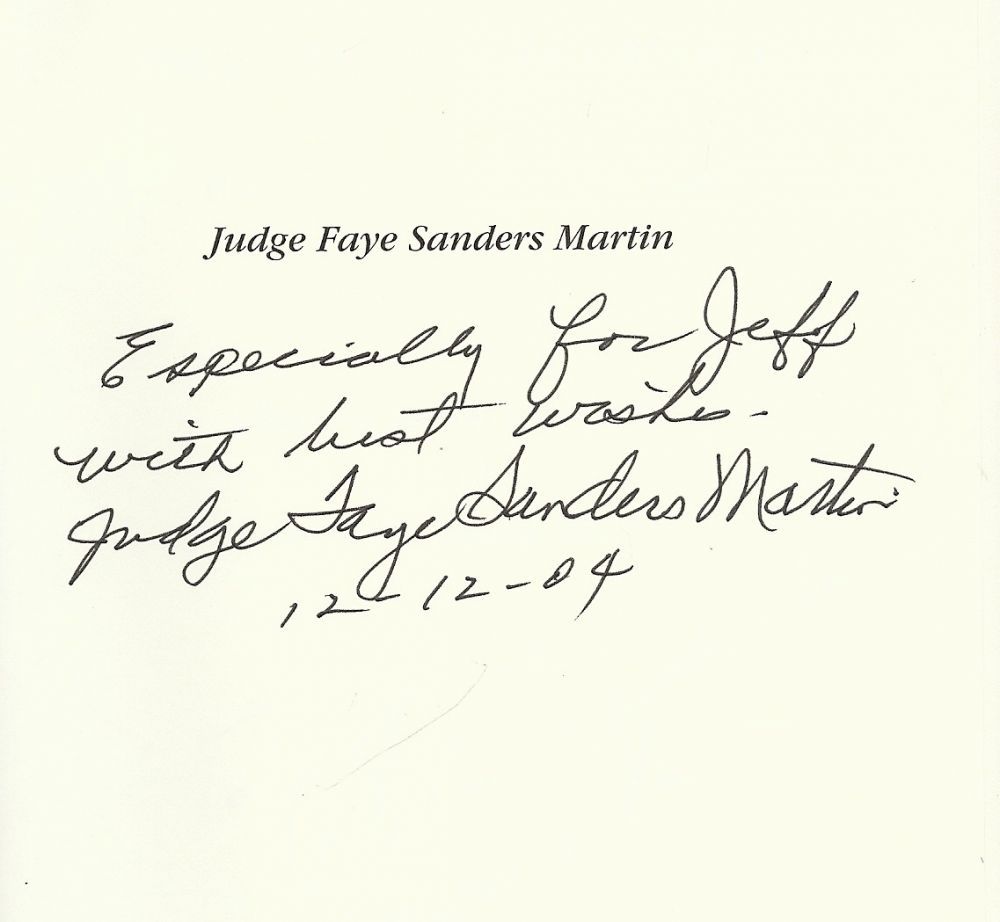 Judge Faye Sanders Martin
Especially for Jeff
with best wishes-
Judge Faye Sanders Martin
12-12-04